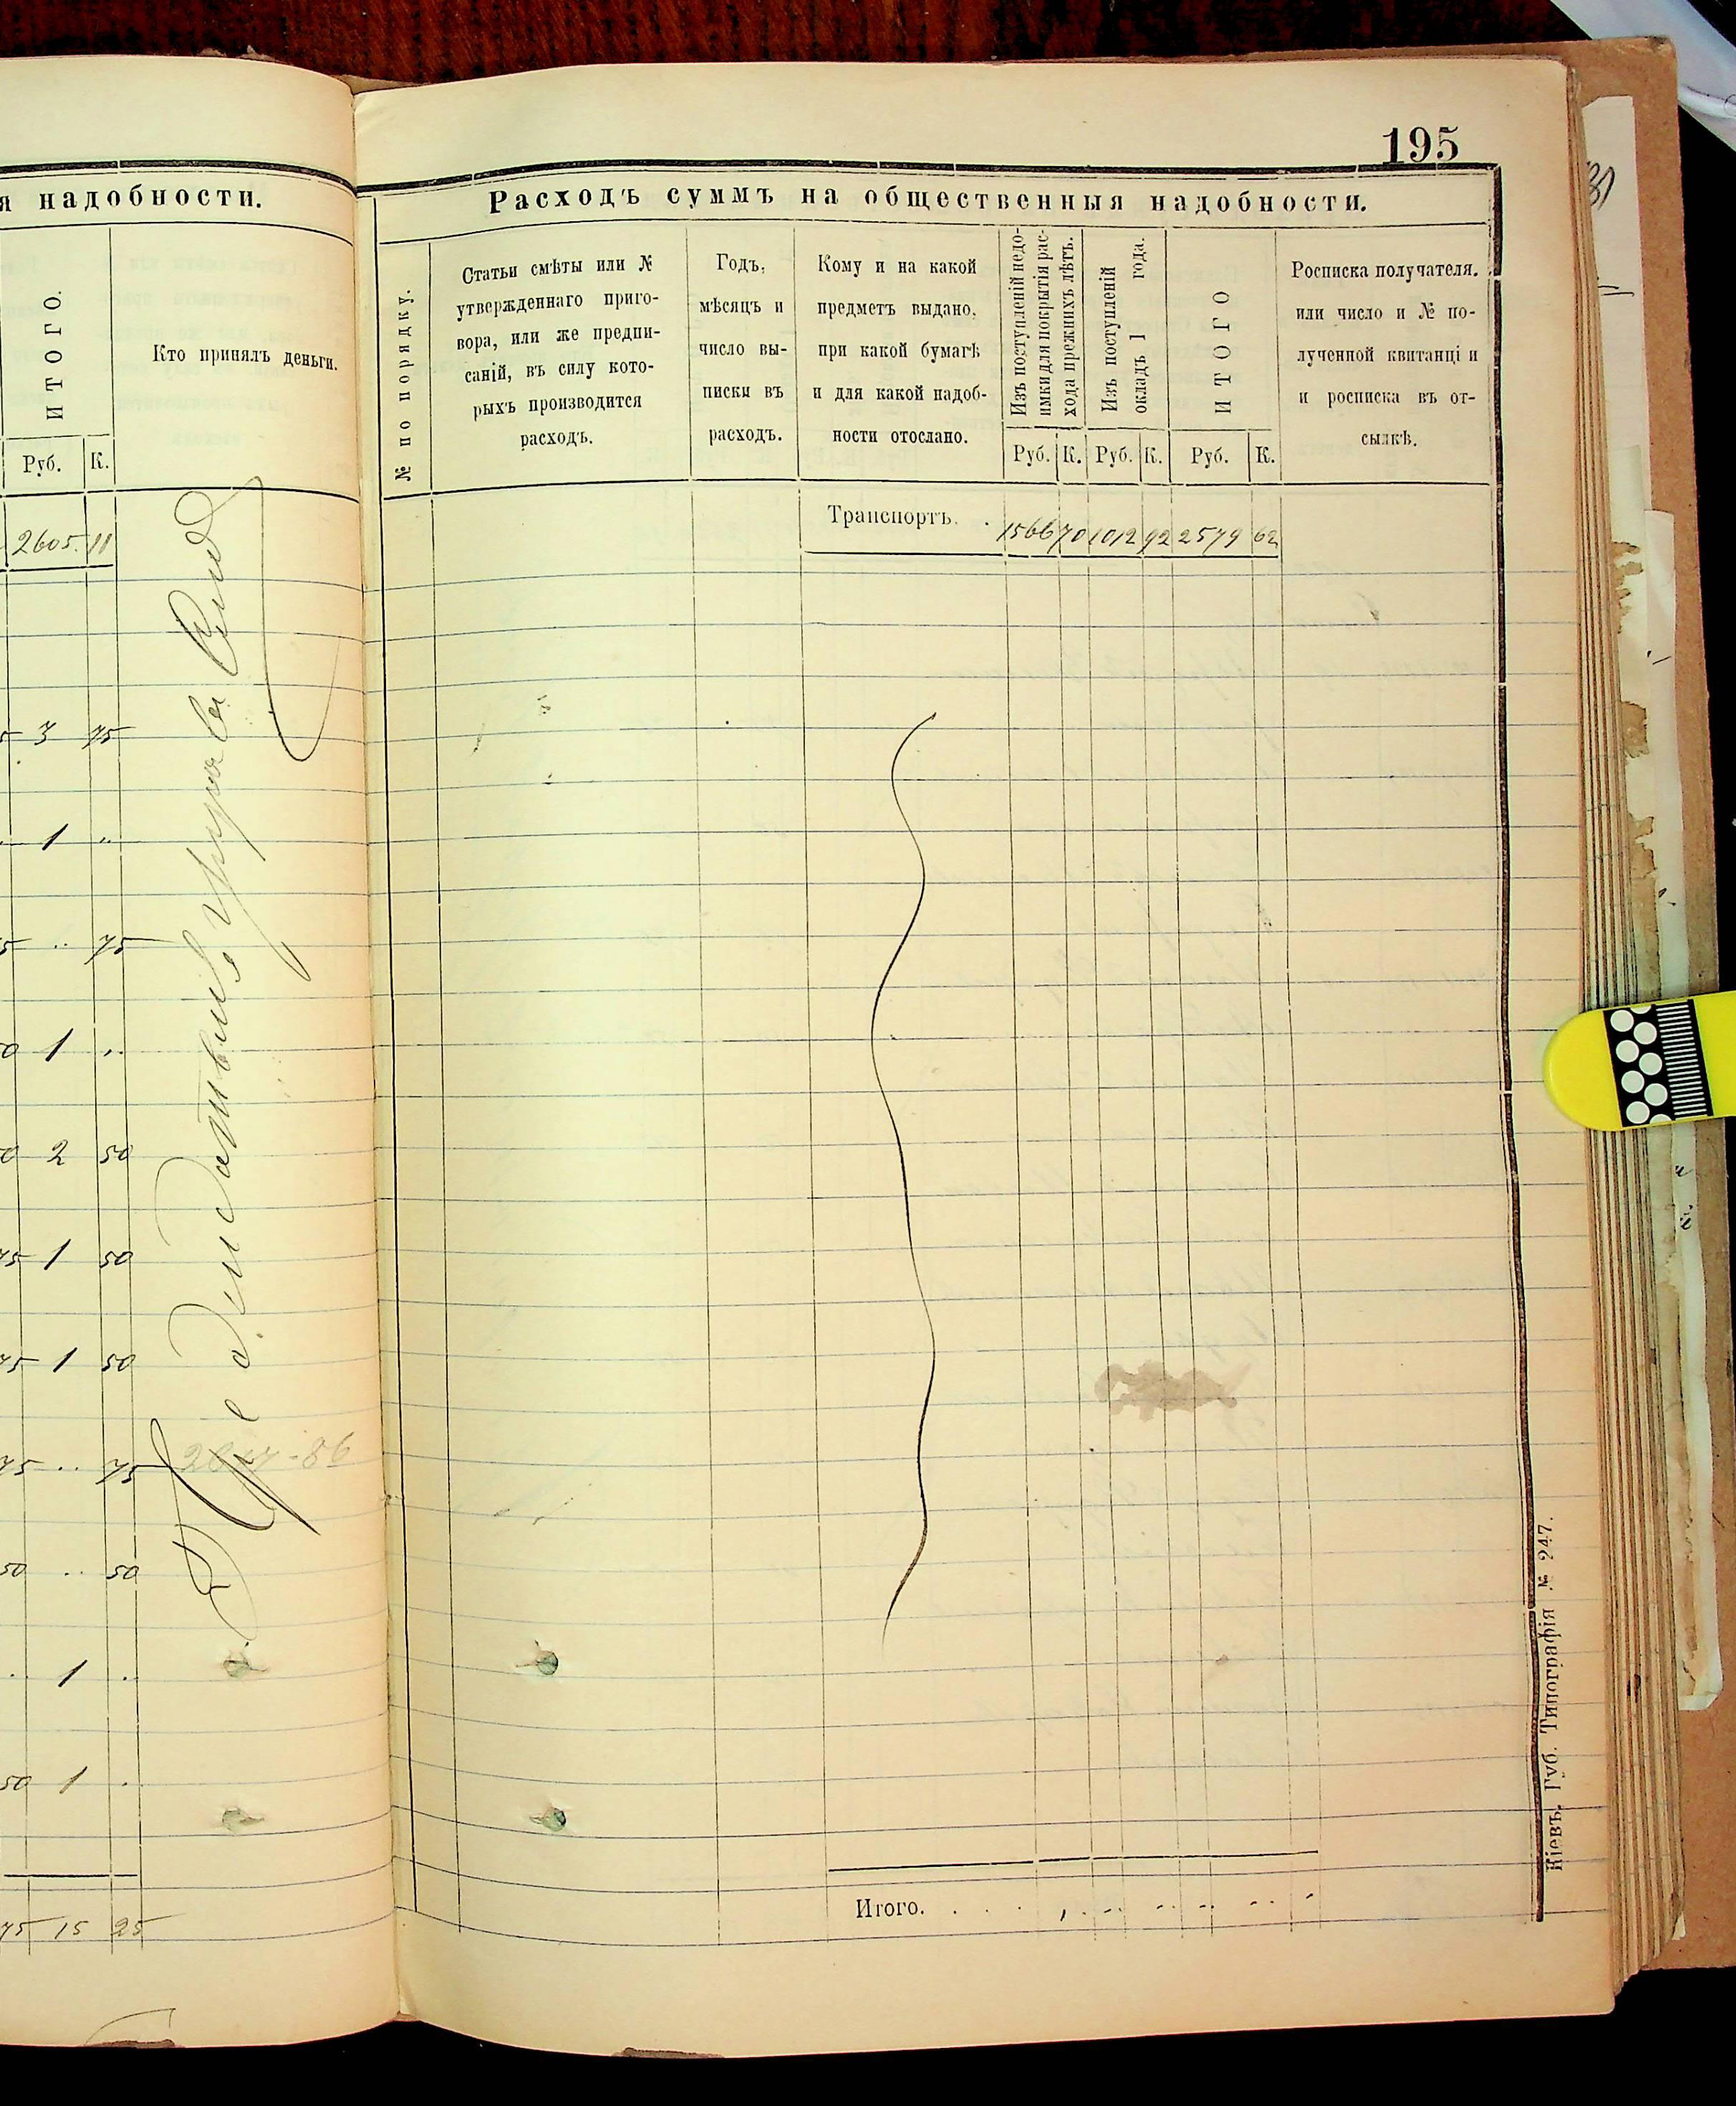 195
я надобности.
ИТОГО.
Кто принялъ деньги.
Руб. К.
2605. 11
5 3 75
1 ..
5 .. 75
0 1 ..
0 2 50
75 1 50
75 1 50
75 .. 75
50 .. 50
. 1 .
50 1 .
75 15 25
Расходъ суммъ на общественныя надобности.
№ по порядку.
Статьи смѣты или №
утвержденнаго приго-
вора, или же предпи-
саній, въ силу кото-
рыхъ производится
расходъ.
Годъ,
мѣсяцъ и
число вы-
писки въ
расходъ.
Кому и на какой
предметъ выдано,
при какой бумагѣ
и для какой надоб-
ности отослано.
Изъ поступленій недо-
имки для покрытія рас-
хода прежнихъ лѣтъ.
Изъ поступленій
окладъ 1 года.
ИТОГО
Росписка получателя.
или число и № по-
лученной квитанці и
и росписка въ от-
сылкѣ.
Руб. К. Руб. К. Руб. К.
Транспортъ. . 1566 70 1012 92 2579 62
Итого. . . .
Кіевъ. Губ. Типографія № 247.